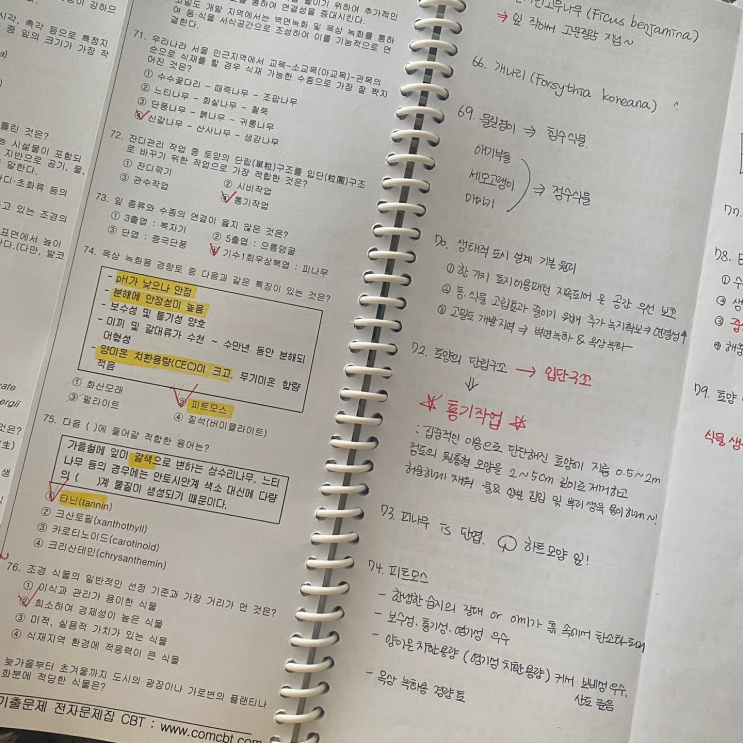 71. 우리나라 서울 인근지역에서 교목-소교목(아교목)-관목의
순으로 식재를 할 경우 식재 가능한 수종으로 가장 잘 짝지
어진 것은?
① 수수꽃다리 - 때죽나무 - 조팝나무
② 느티나무 - 화살나무 - 철쭉
③ 단풍나무 - 붉나무 - 귀룽나무
④ 신갈나무 - 산사나무 - 생강나무
72. 잔디관리 작업 중 토양의 단립(單粒)구조를 입단(粒團)구조
로 바꾸기 위한 작업으로 가장 적합한 것은?
① 잔디깎기 ② 시비작업
③ 관수작업 ④ 통기작업
73. 잎 종류와 수종의 연결이 옳지 않은 것은?
① 3출엽 : 복자기 ② 5출엽 : 으름덩굴
③ 단엽 : 중국단풍 ④ 기수1회우상복엽 : 피나무
74. 옥상 녹화용 경량토 중 다음과 같은 특징이 있는 것은?
- pH가 낮으나 안정
- 분해에 안정성이 높음
- 보수성 및 통기성 양호
- 이끼 및 갈대류가 수천 ~ 수만년 동안 분해되
어형성
- 양이온 치환용량(CEC)이 크고, 무기이온 함량
적음
① 화산모래 ② 피트모스
③ 펄라이트 ④ 질석(버미큘라이트)
75. 다음 ( )에 들어갈 적합한 용어는?
가을철에 잎이 갈색으로 변하는 상수리나무, 느티
나무 등의 경우에는 안토시안계 색소 대신에 다량
의 ( )계 물질이 생성되기 때문이다.
① 타닌(tannin)
② 크산토필(xanthothyll)
③ 카로티노이드(carotinoid)
④ 크리산테민(chrysanthemin)
76. 조경 식물의 일반적인 선정 기준과 가장 거리가 먼 것은?
① 이식과 관리가 용이한 식물
② 희소하여 경제성이 높은 식물
③ 미적, 실용적 가치가 있는 식물
④ 식재지역 환경에 적응력이 큰 식물
늦가을부터 초겨울까지 도시의 광장이나 가로변의 플랜티나
화분에 적당한 식물은?
기출문제 전자문제집 CBT : www.comcbt.com
고무나무 (Ficus benjamina)
66. 개나리 (Forsythia koreana)
69. 물질경이 ⇒ 침수식물
애기부들
세모고랭이
⇒ 정수식물
70. 생태적 도시 설계 기본 원리
① 한 가지 토지이용패턴 지속되어 온 공간 우선 보호
② 동·식물 고립효과 줄이기 위해 추가 녹지확보 ⇒ 연결성↑
③ 고밀도 개발지역 ⇒ 벽면녹화 & 옥상녹화~
72. 토양의 단립구조 → 입단구조
통기작업
: 집중적인 이용으로 단단해진 토양에 지름 0.5~2cm
정도의 원통형 모양을 2~5cm 깊이로 제거하고
허술하게 채워 물 & 양분 침입 및 뿌리 생육 용이하게~!
73. 피나무 is 단엽. 하트모양 잎!
74. 피트모스
- 한랭한 습지의 갈대 or 이끼가 흙 속에서 탄소화되어
- 보수성, 통기성, 염기성 우수
- 양이온 치환용량 (염기성 치환용량) 커서 보비성 우수,
산도 높음
- 옥상 녹화용 경량토
78.
79. 토양